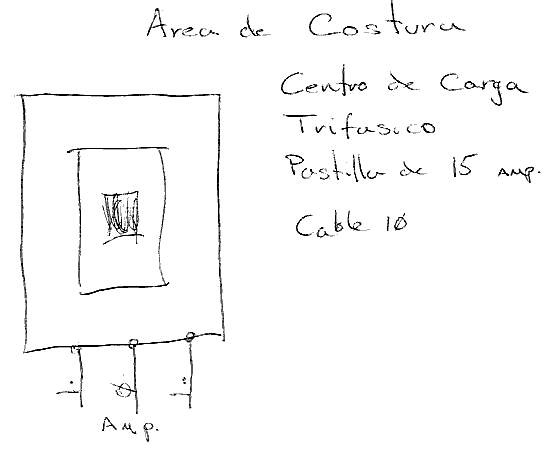 Area de Costura
Centro de Carga
Trifasico
Pastilla de 15 Amp.
Cable 10
Amp.